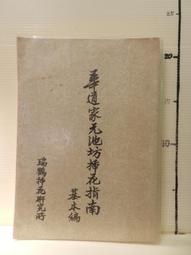 華道家元池坊挿花指南
基本編
瑞鸚挿花研究所